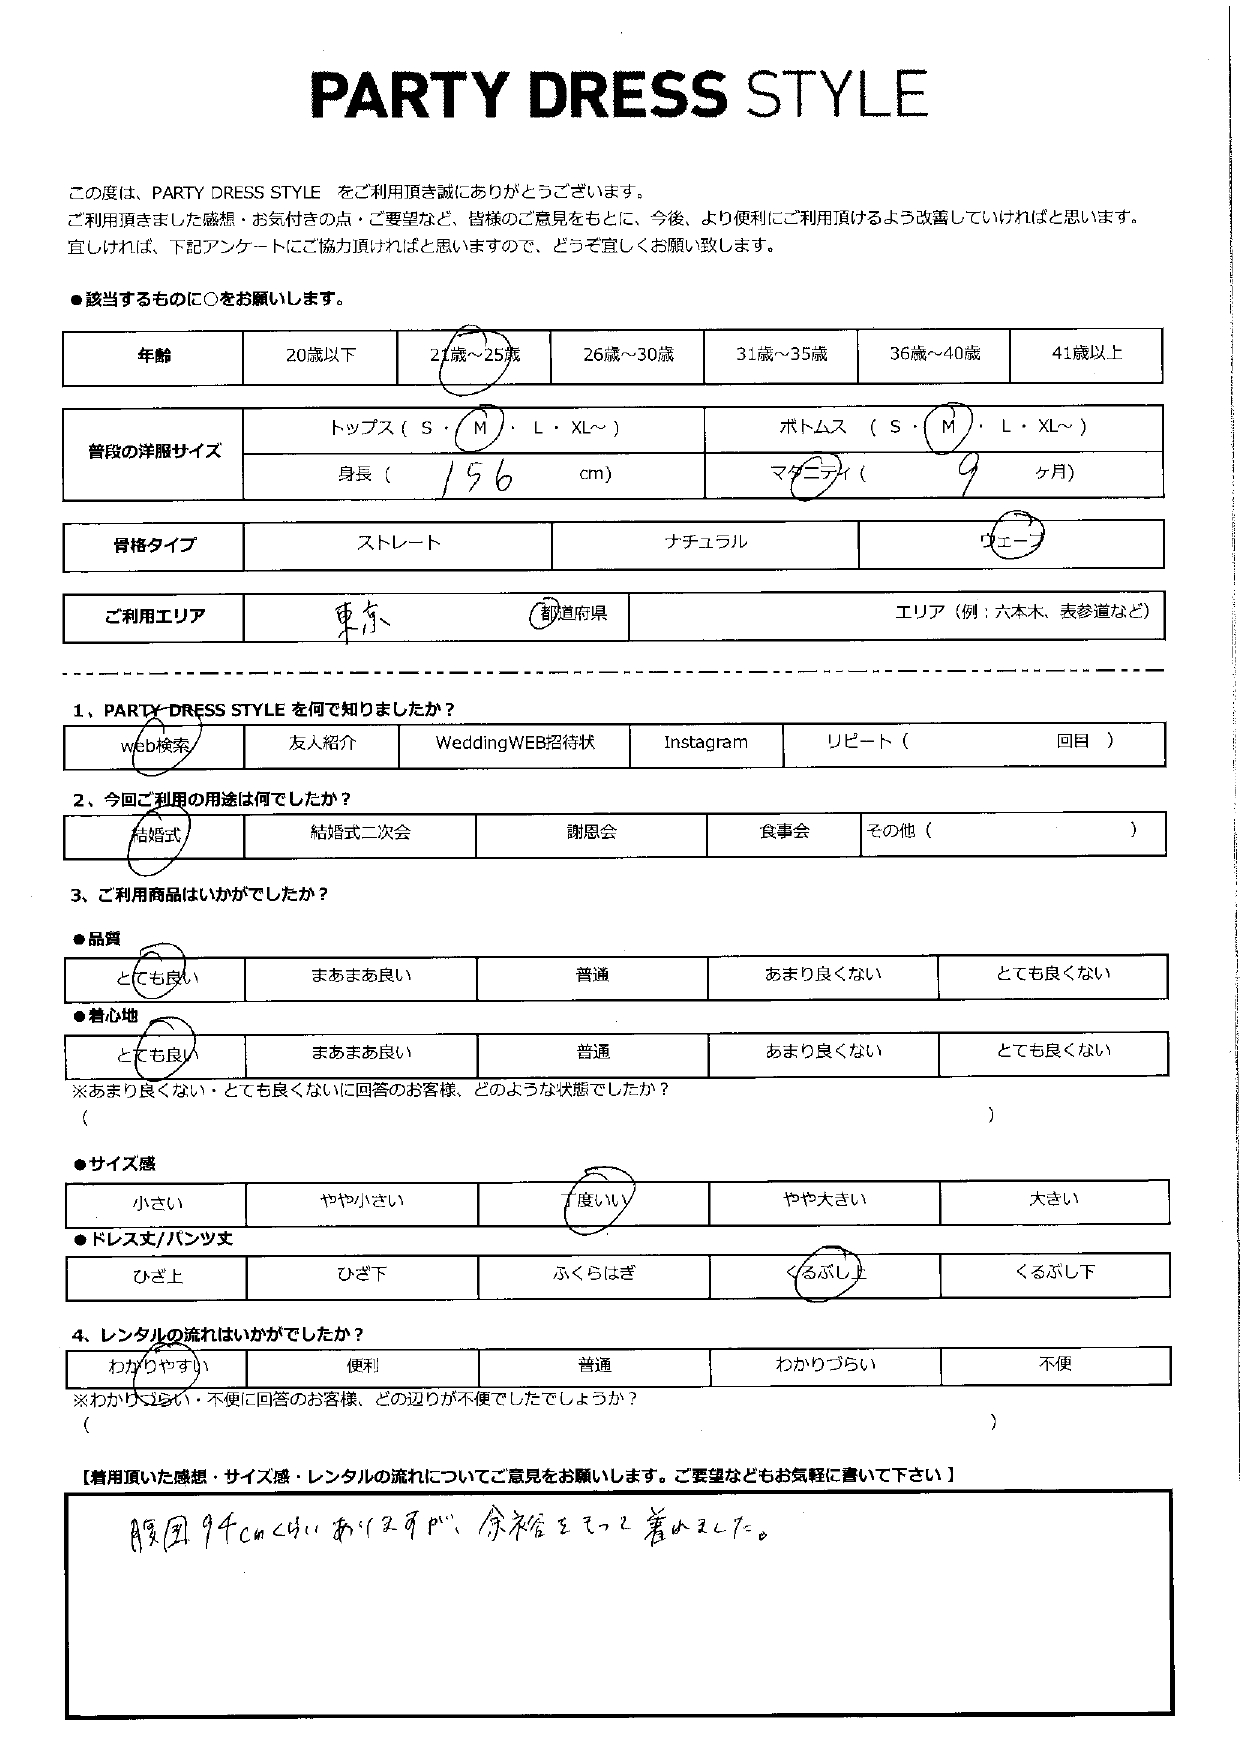 PARTY DRESS STYLE
この度は、PARTY DRESS STYLE をご利用頂き誠にありがとうございます。
ご利用頂きました感想・お気付きの点・ご要望など、皆様のご意見をもとに、今後、より便利にご利用頂けるよう改善していければと思います。
宜しければ、下記アンケートにご協力頂ければと思いますので、どうぞ宜しくお願い致します。
●該当するものに○をお願いします。
年齢 20歳以下 21歳～25歳 26歳～30歳 31歳～35歳 36歳～40歳 41歳以上
普段の洋服サイズ トップス ( S ・ M ・ L ・ XL～ ) ボトムス ( S ・ M ・ L ・ XL～ )
身長 ( 156 cm) マタニティ ( 9 ヶ月)
骨格タイプ ストレート ナチュラル ウェーブ
ご利用エリア 東京 都道府県 エリア（例：六本木、表参道など）
1、PARTY DRESS STYLE を何で知りましたか？
web検索 友人紹介 WeddingWEB招待状 Instagram リピート（ 回目 ）
2、今回ご利用の用途は何でしたか？
結婚式 結婚式二次会 謝恩会 食事会 その他（ ）
3、ご利用商品はいかがでしたか？
●品質
とても良い まあまあ良い 普通 あまり良くない とても良くない
●着心地
とても良い まあまあ良い 普通 あまり良くない とても良くない
※あまり良くない・とても良くないに回答のお客様、どのような状態でしたか？
（ ）
●サイズ感
小さい やや小さい 丁度いい やや大きい 大きい
●ドレス丈/パンツ丈
ひざ上 ひざ下 ふくらはぎ くるぶし上 くるぶし下
4、レンタルの流れはいかがでしたか？
わかりやすい 便利 普通 わかりづらい 不便
※わかりづらい・不便に回答のお客様、どの辺りが不便でしたでしょうか？
（ ）
【着用頂いた感想・サイズ感・レンタルの流れについてご意見をお願いします。ご要望などもお気軽に書いて下さい】
腹囲94cmくらいありますが、余裕をもって着れました。